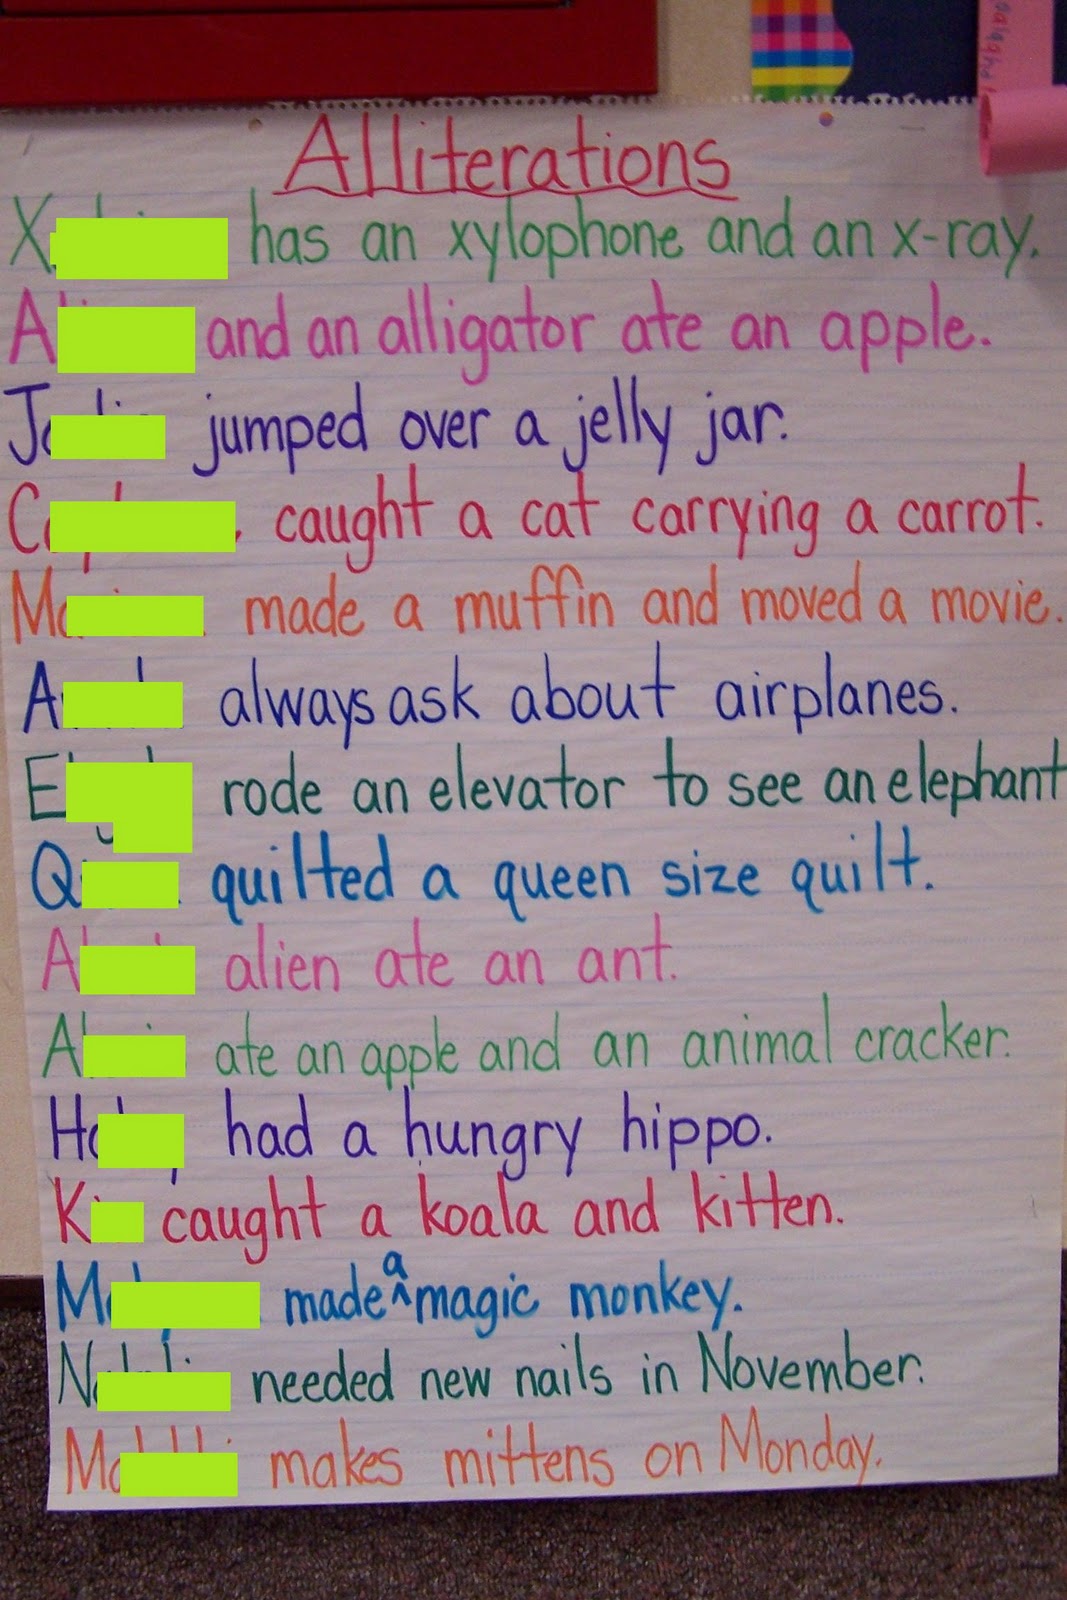 Alliterations
has an xylophone and an x-ray.
and an alligator ate an apple.
jumped over a jelly jar.
caught a cat carrying a carrot.
made a muffin and moved a movie.
always ask about airplanes.
rode an elevator to see an elephant
quilted a queen size quilt.
alien ate an ant.
ate an apple and an animal cracker.
had a hungry hippo.
caught a koala and kitten.
made a magic monkey.
needed new nails in November.
makes mittens on Monday.